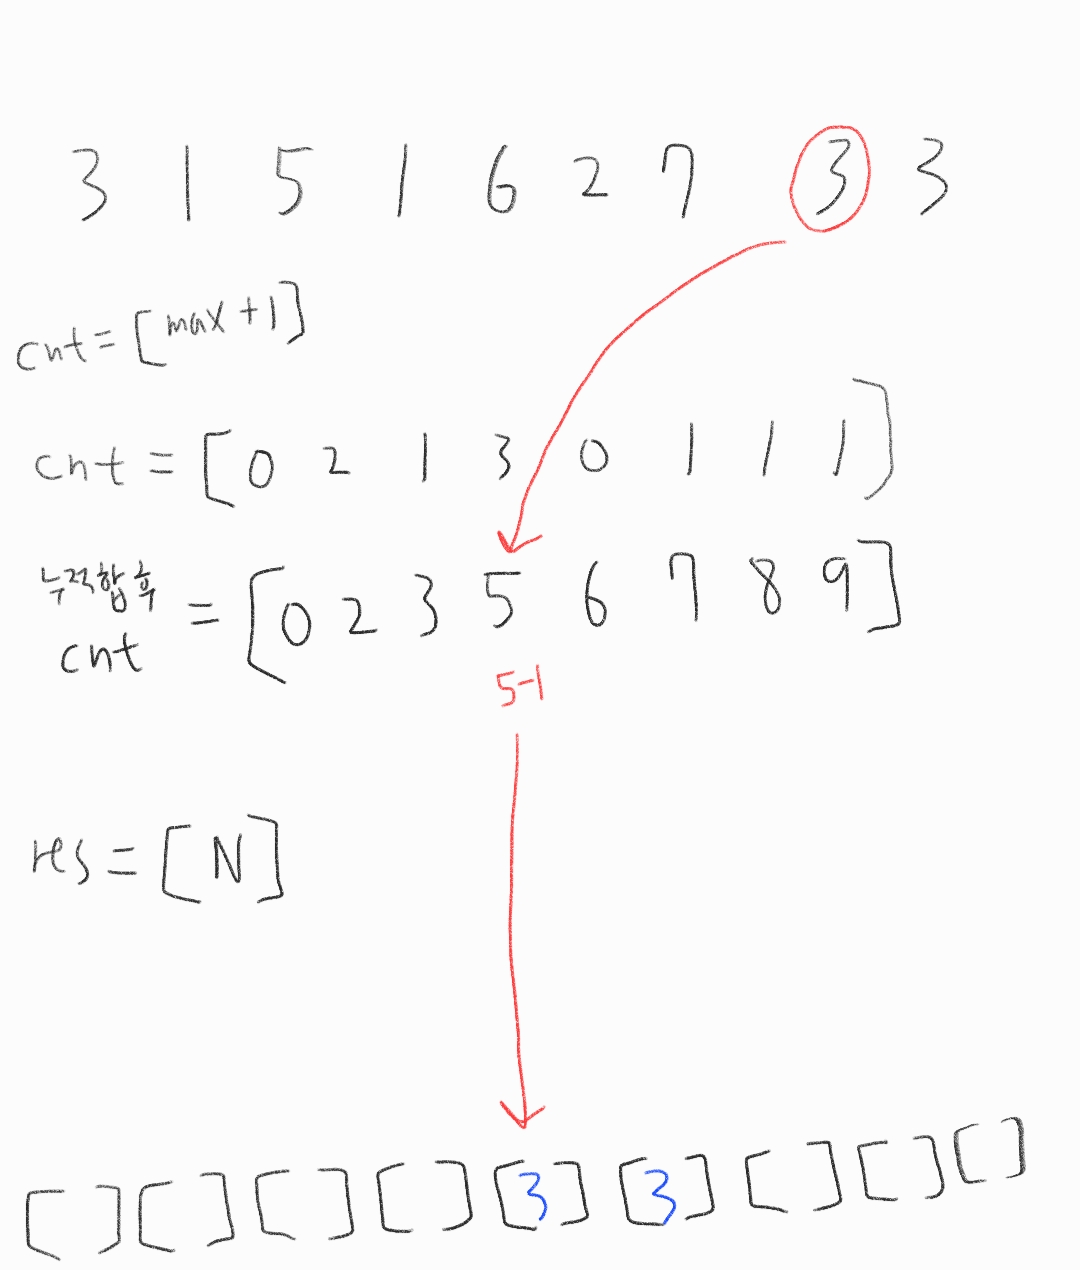 3 1 5 1 6 2 7 3 3
cnt = [max+1]
cnt = [0 2 1 3 0 1 1 1]
누적합 후
cnt = [0 2 3 5 6 7 8 9]
5-1
res = [N]
[ ] [ ] [ ] [ ] [3] [3] [ ] [ ] [ ]